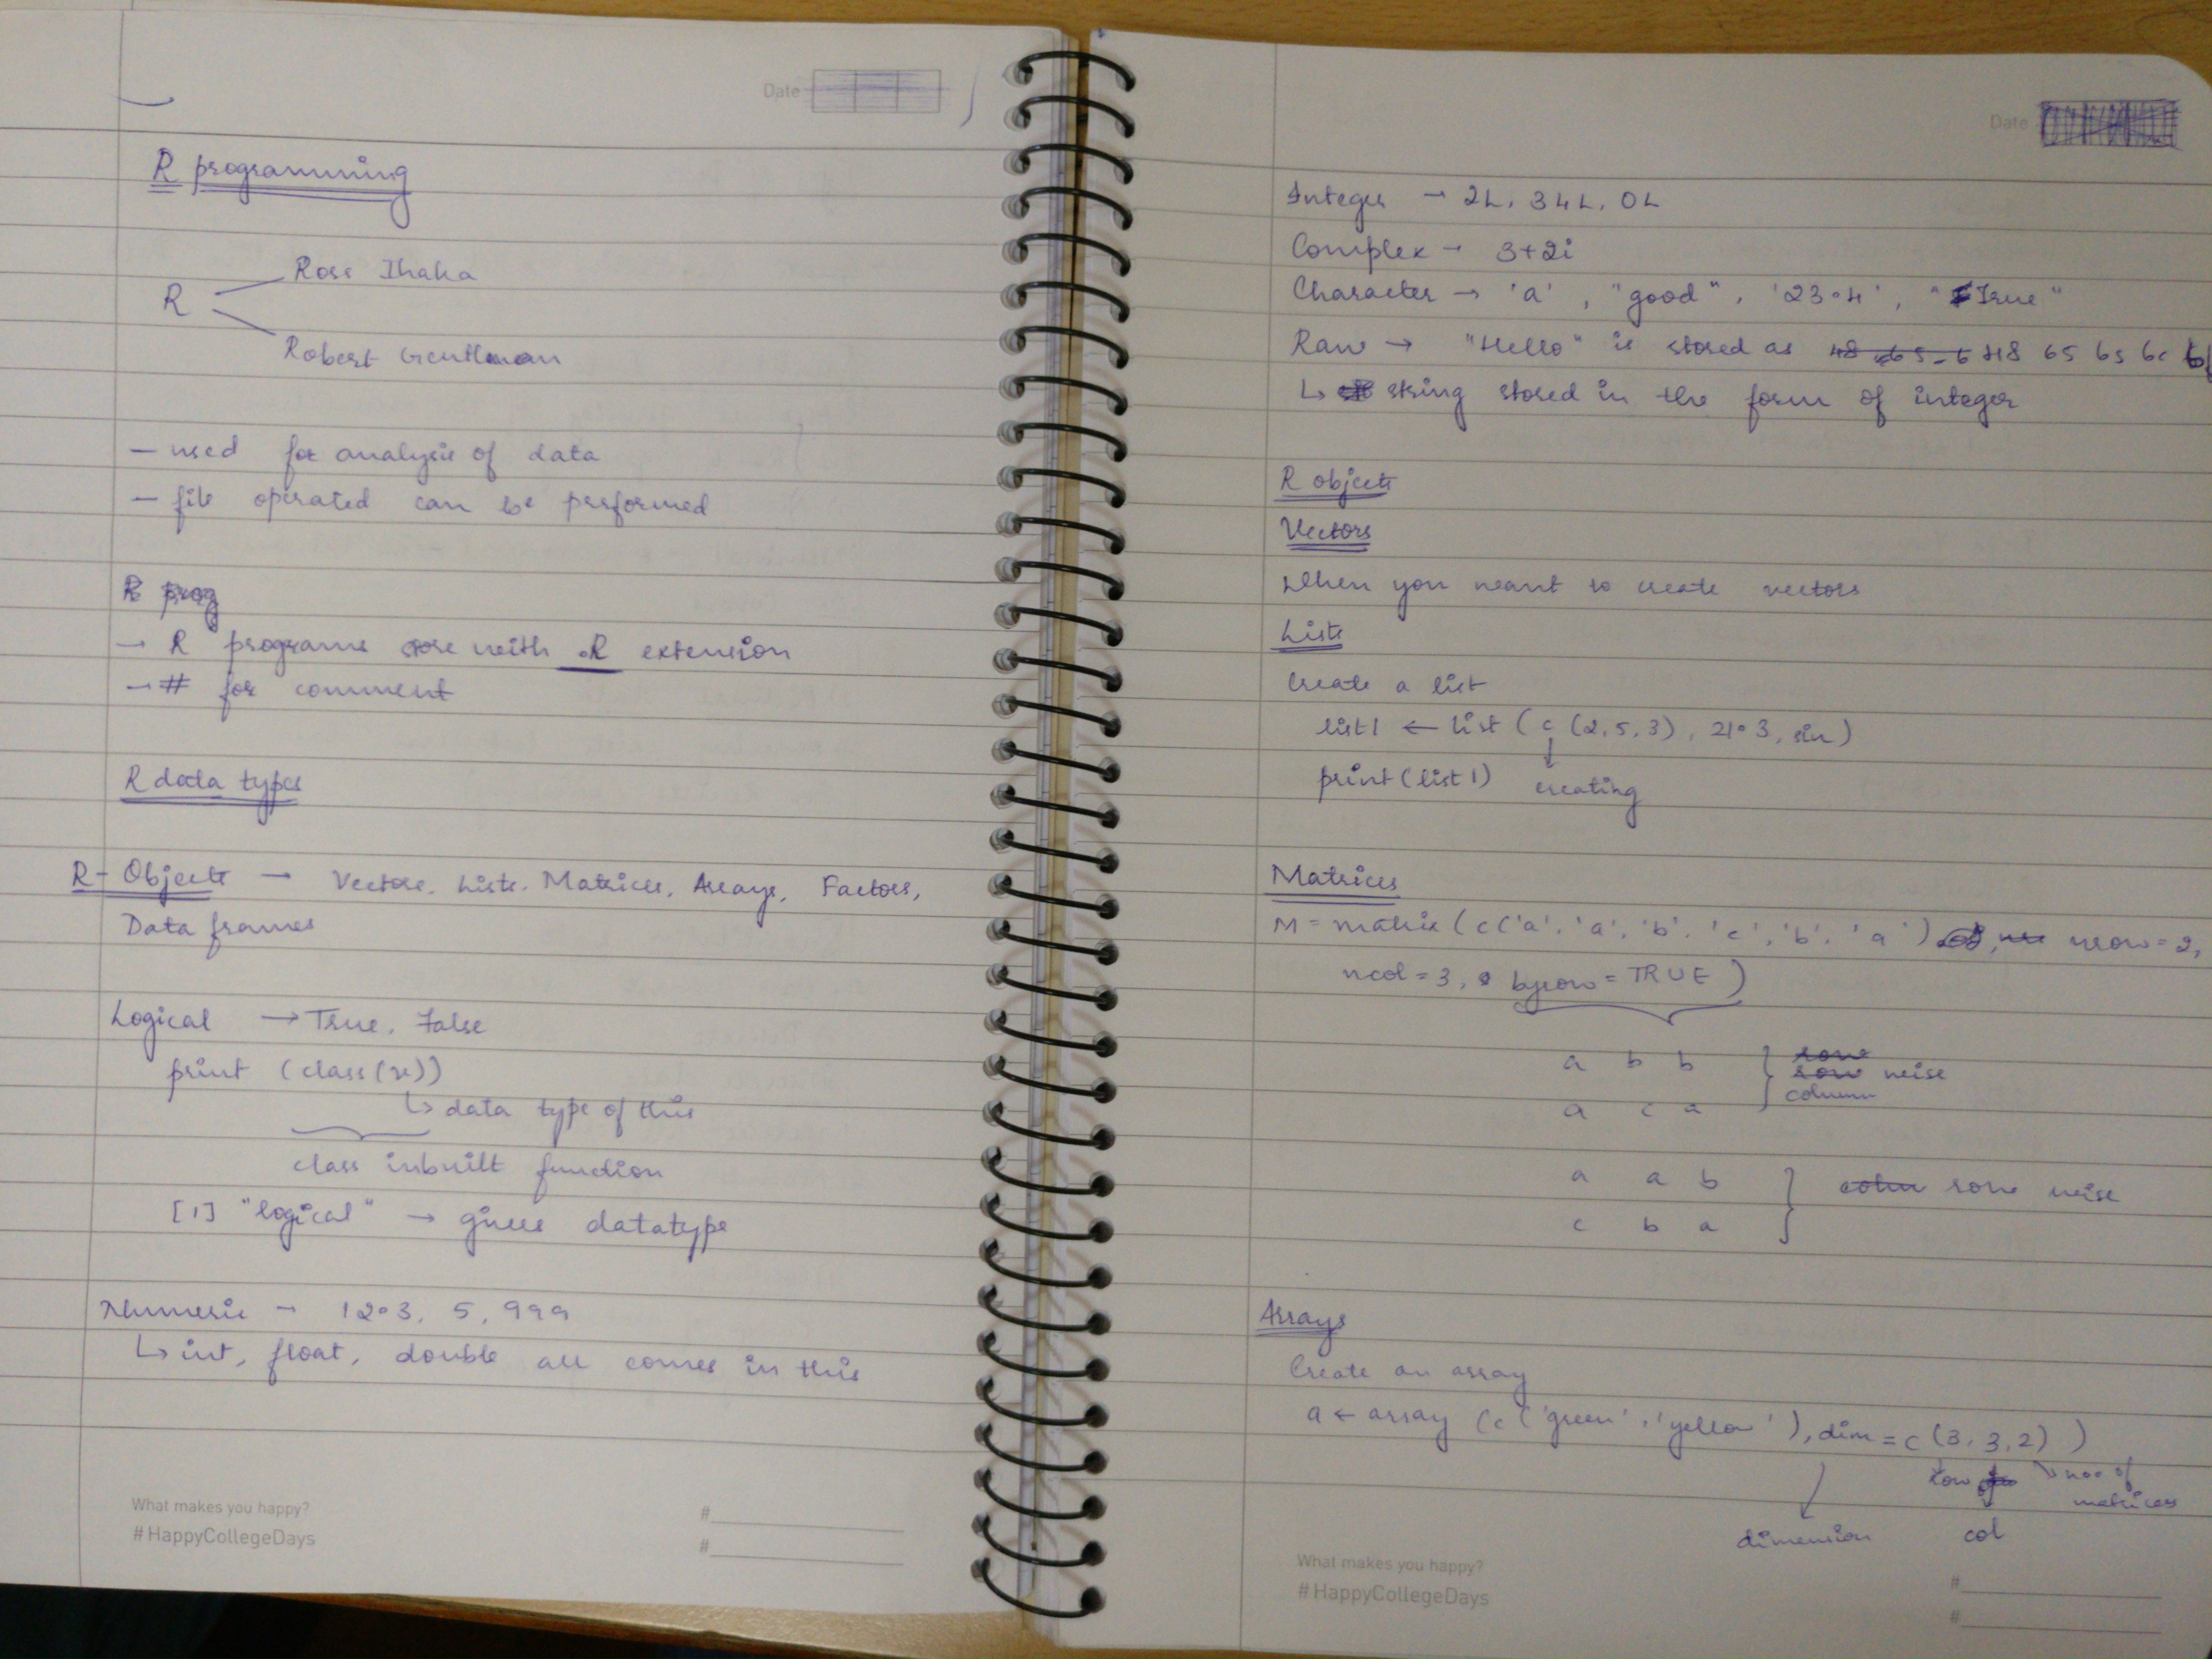 Date
R programming
Ross Ihaka
R
Robert Gentleman
- used for analysis of data
- file operated can be performed
R prog
→ R programs are with .R extension
→ # for comment
R data types
R- Objects → Vectors, Lists, Matrices, Arrays, Factors,
Data frames
Logical → True, False
print (class(x))
↳ data type of this
class inbuilt function
[1] "logical" → gives datatype
Numeric → 12.3, 5, 999
↳ int, float, double all comes in this
What makes you happy?
#HappyCollegeDays
#
#
Date
Integer → 2L, 34L, 0L
Complex → 3+2i
Character → 'a', "good", '23.4', "True"
Raw → "Hello" is stored as 48 65 6 48 65 6s 6c 6f
↳ string stored in the form of integer
R objects
Vectors
When you want to create vectors
Lists
Create a list
list1 ← list (c (2,5,3), 21.3, sin)
print(list1) creating
Matrices
M = matrix (c('a','a','b','c','b','a'), nrow=2,
ncol=3, byrow=TRUE)
a b b } row
row wise
column
a c a
a a b } colu row wise
c b a
Arrays
Create an array
a ← array (c('green','yellow'), dim=c(3,3,2))
row no. of
matrices
dimension col
What makes you happy?
#HappyCollegeDays
#
#